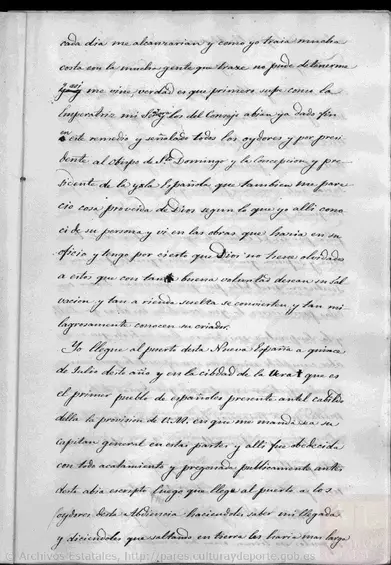 cada dia me alcanzarian y como yo traia mucha
costa con la mucha gente que traxe no pude detenerme
y asi me vine verdad es que primero supe como la
Imperatriz mi Sª y los del Consejo abian ya dado fin
en este remedio y señalado todos los oydores y por presi
dente al obispo de Stº Domingo y la Concepcion y pre
sidente de la ysla Española que tambien me pare
cio cosa proveida de Dios segun lo que yo alli cono
ci de su persona y vi en las obras que hazia en su
oficio y tengo por cierto que Dios no tiene olvidados
a estos que con tanta buena voluntad desean su sal
vacion y tan a rienda suelta se convierten y tan mi
lagrosamente conocen su criador.
Yo llegue al puerto desta Nueva España a quince
de Julio deste año y en la cibdad de la Veraꝉ que es
el primer pueblo de españoles presente antel cabildo
della la provision de V. M. en que me manda sea su
Capitan general en estas partes y alli fue obedecida
con todo acatamiento y pregonada publicamente antes
desto abia escripto luego que llegue al puerto a los
oydores desta Abdiencia haciendoles saber mi llegada
y diciendoles que saltando en tierra les haria mas larga
© Archivos Estatales, http://pares.culturaydeporte.gob.es